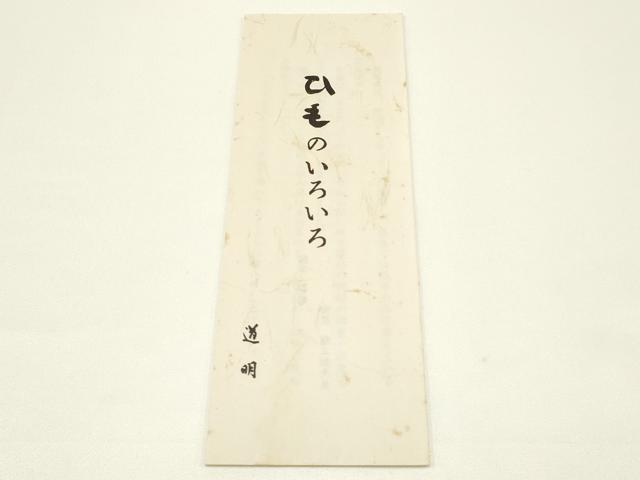 ひ毛のいろいろ
道明